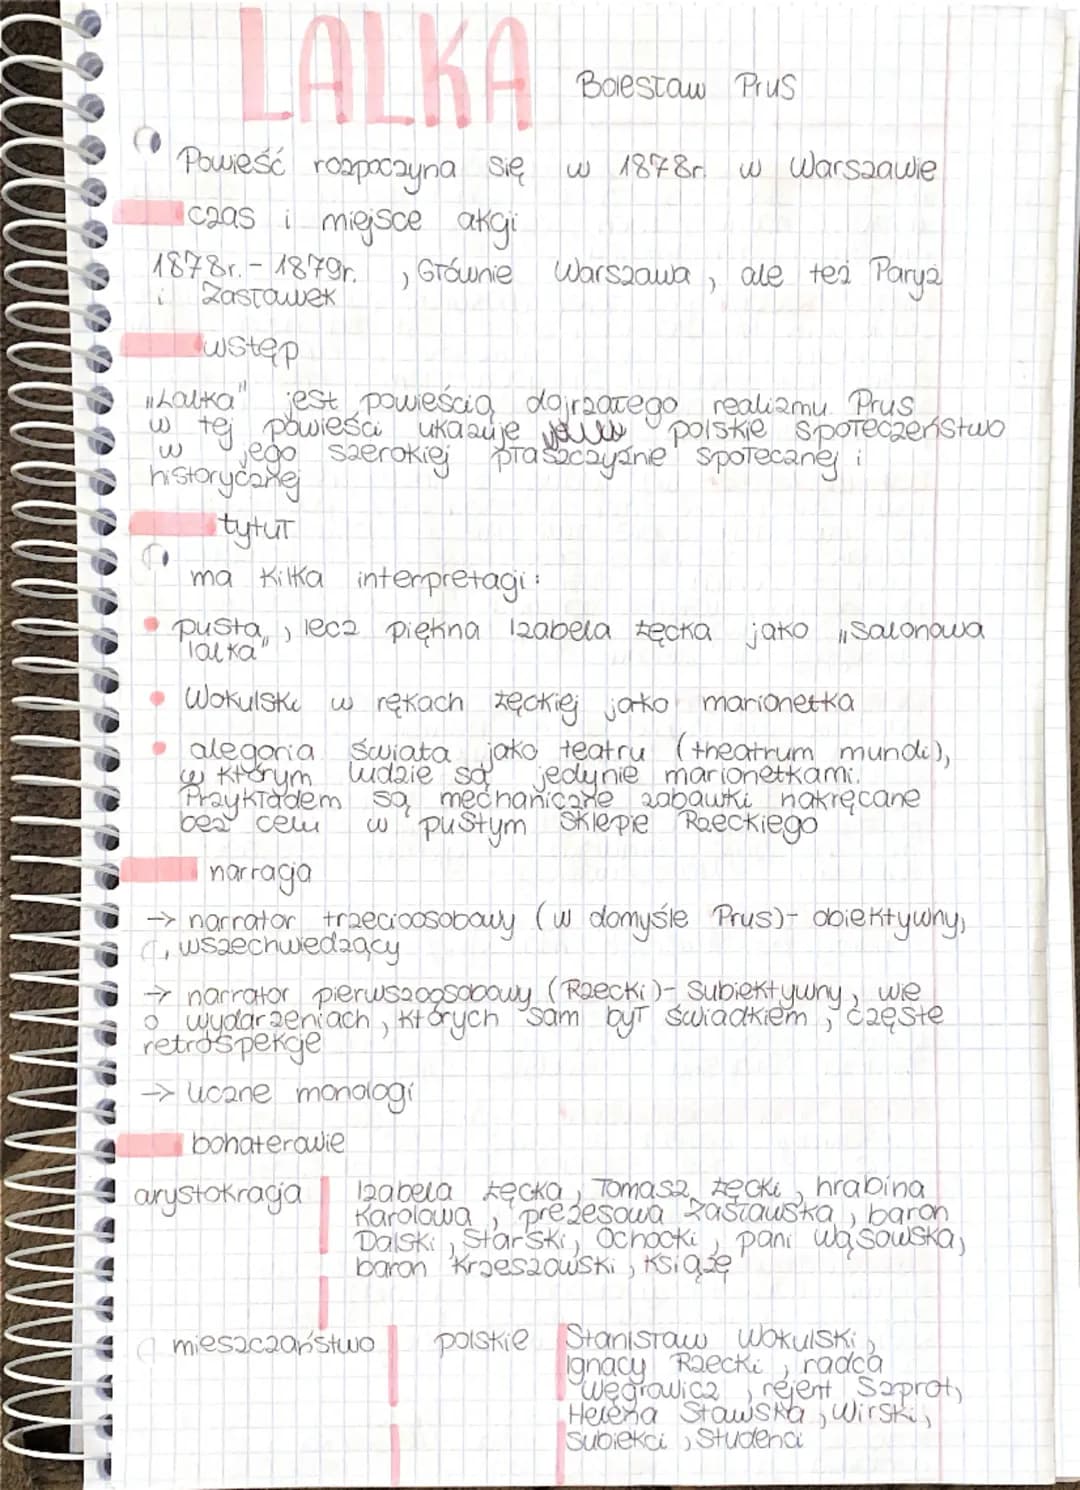 LALKA
Bolesław Prus
Powieść rozpoczyna się w 1878r. w Warszawie
czas i miejsce akcji
1878r. - 1879r. , Głównie Warszawa , ale też Paryż
i Zasławek
wstęp
"Lalka" jest powieścią dojrzałego realizmu. Prus
w tej powieści ukazuje polskie społeczeństwo
w jego szerokiej płaszczyźnie społecznej i
historycznej
tytuł
ma kilka interpretacji:
• pusta , lecz piękna Izabela Łęcka jako "salonowa
lalka"
• Wokulski w rękach Łęckiej jako marionetka
• alegoria świata jako teatru (theatrum mundi),
w którym ludzie są jedynie marionetkami.
Przykładem są mechaniczne zabawki nakręcane
bez celu w pustym sklepie Rzeckiego
narracja
→ narrator trzecioosobowy (w domyśle Prus) - obiektywny,
, wszechwiedzący
→ narrator pierwszoosobowy (Rzecki) - subiektywny, wie
o wydarzeniach, których sam był świadkiem , częste
retrospekcje
→ liczne monologi
bohaterowie
arystokracja
Izabela Łęcka , Tomasz Łęcki , hrabina
Karolowa , prezesowa Zasławska , baron
Dalski , Starski , Ochocki , pani Wąsowska,
baron Krzeszowski , Książę
mieszczaństwo
polskie
Stanisław Wokulski ,
Ignacy Rzecki , radca
Węgrowicz , rejent Szprot,
Helena Stawska , Wirski ,
subiekci , studenci